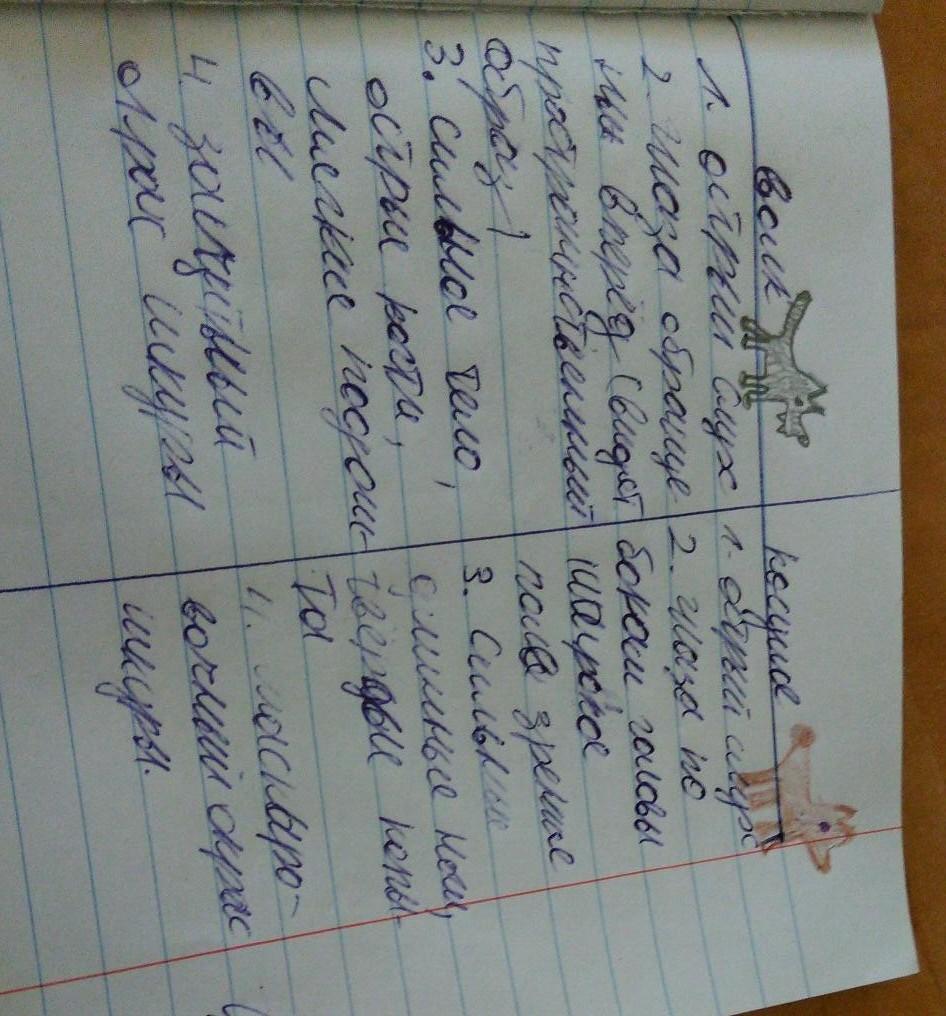 волк
1. острый слух
2. глаза обраще
ны вперёд (видят
пространственный
образ)
3. сильное тело,
острые когти,
мягкие подош-
вы
4. защитный
окрас шкуры
косуля
1. острый слух
2. глаза по
бокам головы
широкое
поле зрение
3. Сильные
длинные ноги,
твёрдые копы-
та
4. маскиро-
вочный окрас
шкуры.